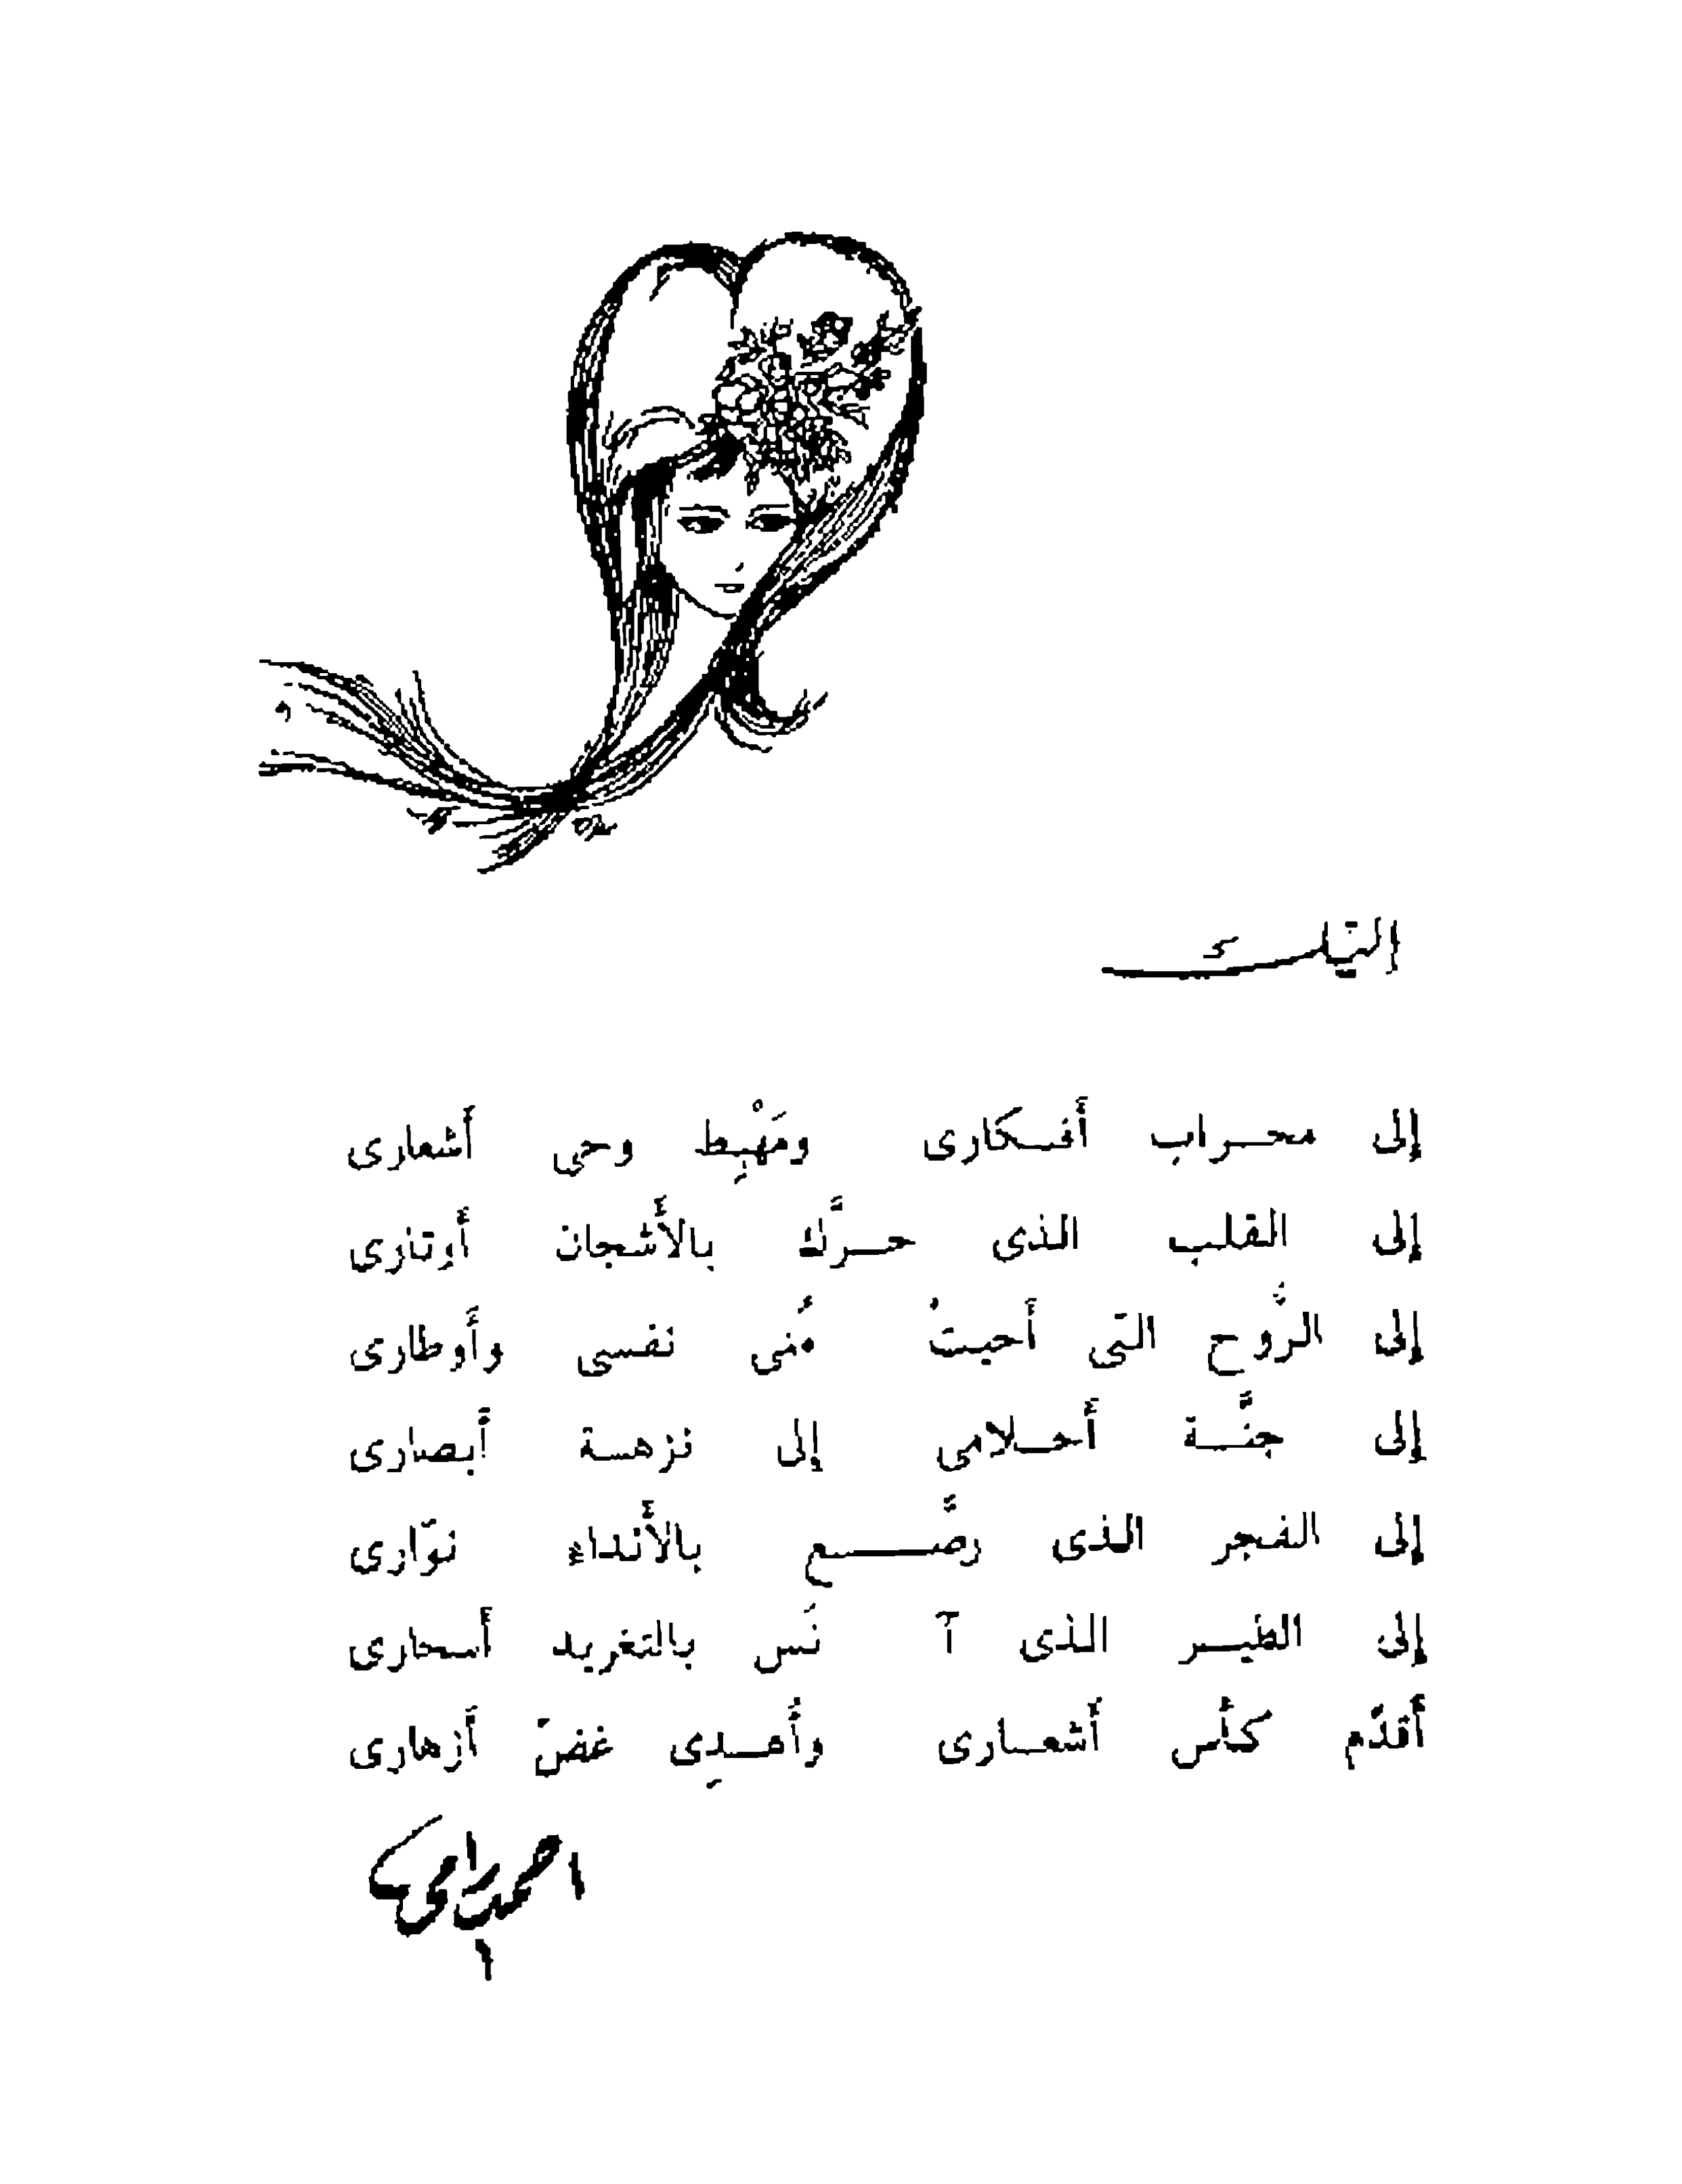 إليك
إلى محراب أفكارى ومَهْبِط وحى أشعارى
إلى القلب الذى حرَّك بالأشجان أوتارى
إلى الرُّوح التى أحيتْ مُنى نفسى وأوطارى
إلى جنَّة أحلامى إلى نزهة أبصارى
إلى الفجر الذى رصَّع بالأنداء نوّارى
إلى الطير الذى آ نَس بالتغريد أسحارى
أقدّم كأس أشعارى وأُهدِى غضّ أزهارى
احمد رامى